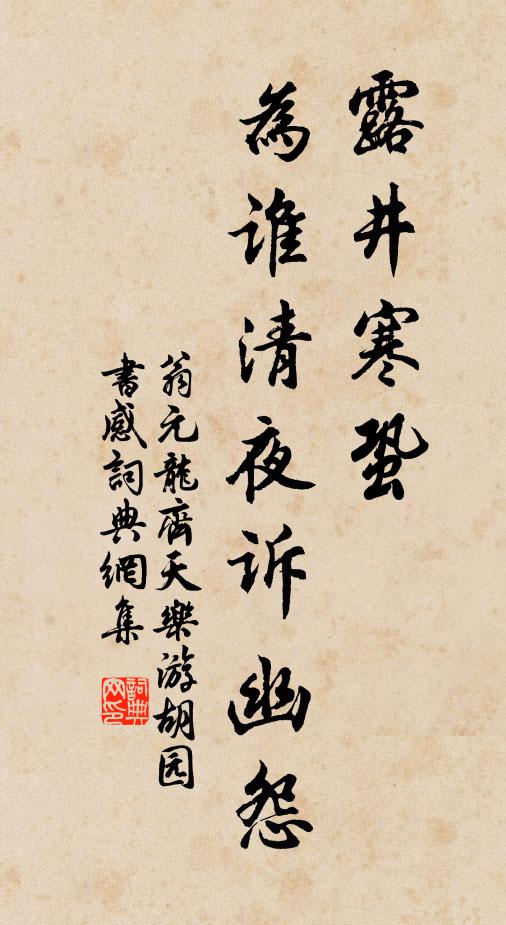 露井寒蛩
為誰清夜訴幽怨
翁元龍齊天樂游胡园
書感詞典網集
詞典网印